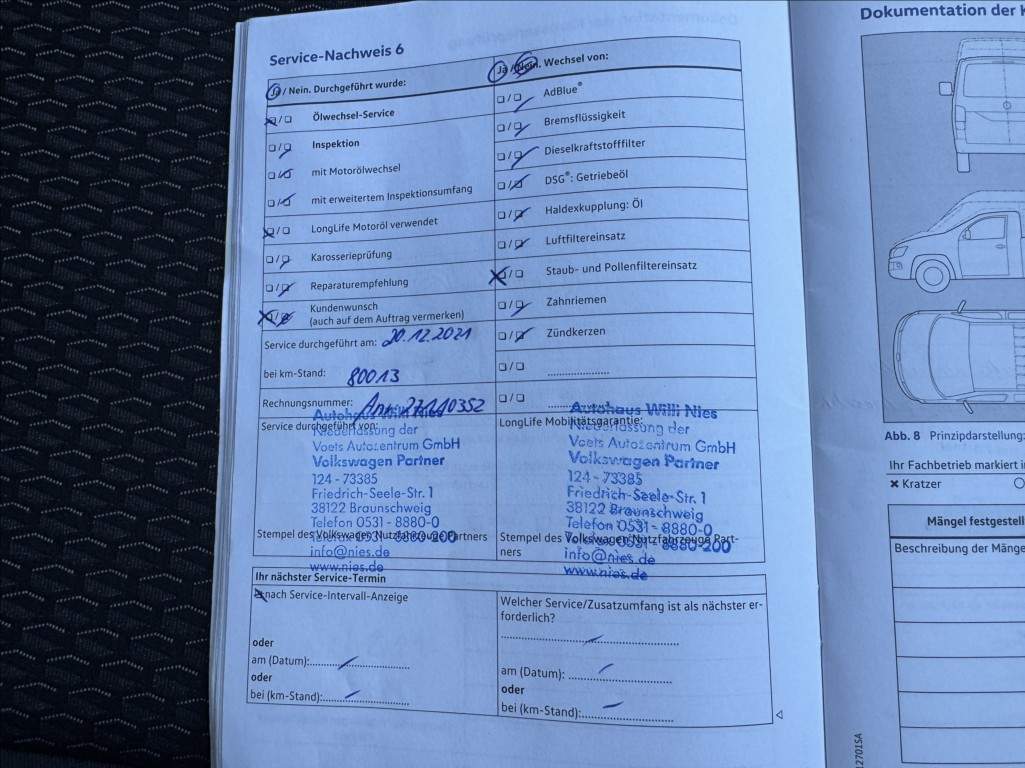 Service-Nachweis 6
Ja / Nein. Durchgeführt wurde:
Ölwechsel-Service
Inspektion
mit Motorölwechsel
mit erweitertem Inspektionsumfang
LongLife Motoröl verwendet
Karosserieprüfung
Reparaturempfehlung
Kundenwunsch
(auch auf dem Auftrag vermerken)
Service durchgeführt am: 20.12.2021
bei km-Stand: 80013
Rechnungsnummer:
Service durchgeführt von:
Autohaus Willi Nies
Niederlassung der
Voets Autozentrum GmbH
Volkswagen Partner
124 - 73385
Friedrich-Seele-Str. 1
38122 Braunschweig
Telefon 0531 - 8880-0
Stempel des Volkswagen Nutzfahrzeuge Partners
info@nies.de
www.nies.de
Ja / Nein. Wechsel von:
AdBlue®
Bremsflüssigkeit
Dieselkraftstofffilter
DSG®: Getriebeöl
Haldexkupplung: Öl
Luftfiltereinsatz
Staub- und Pollenfiltereinsatz
Zahnriemen
Zündkerzen
LongLife Mobilitätsgarantie:
Autohaus Willi Nies
Niederlassung der
Voets Autozentrum GmbH
Volkswagen Partner
124 - 73385
Friedrich-Seele-Str. 1
38122 Braunschweig
Telefon 0531 - 8880-0
Stempel des Volkswagen Nutzfahrzeuge Part-
ners
info@nies.de
www.nies.de
Ihr nächster Service-Termin
nach Service-Intervall-Anzeige
oder
am (Datum):
oder
bei (km-Stand):
Welcher Service/Zusatzumfang ist als nächster er-
forderlich?
am (Datum):
oder
bei (km-Stand):
Dokumentation der
Abb. 8 Prinzipdarstellung:
Ihr Fachbetrieb markiert
Kratzer
Mängel festgestell
Beschreibung der Mänge
12701SA